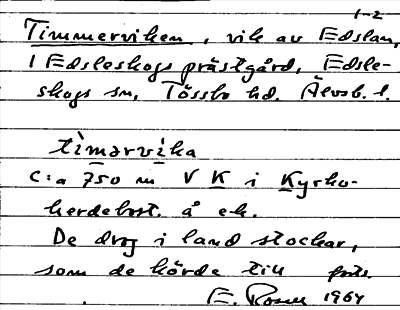 1-2
Timmerviken, vik av Edslan,
1 Edsleskogs prästgård, Edsle-
skogs sn, Tössbo hd. Älvsb. l.
timərvika
c:a 750 m V K i Kyrko-
herdebost. å ek.
De drog i land stockar,
som de hörde till forts.
E. Rosen 1964